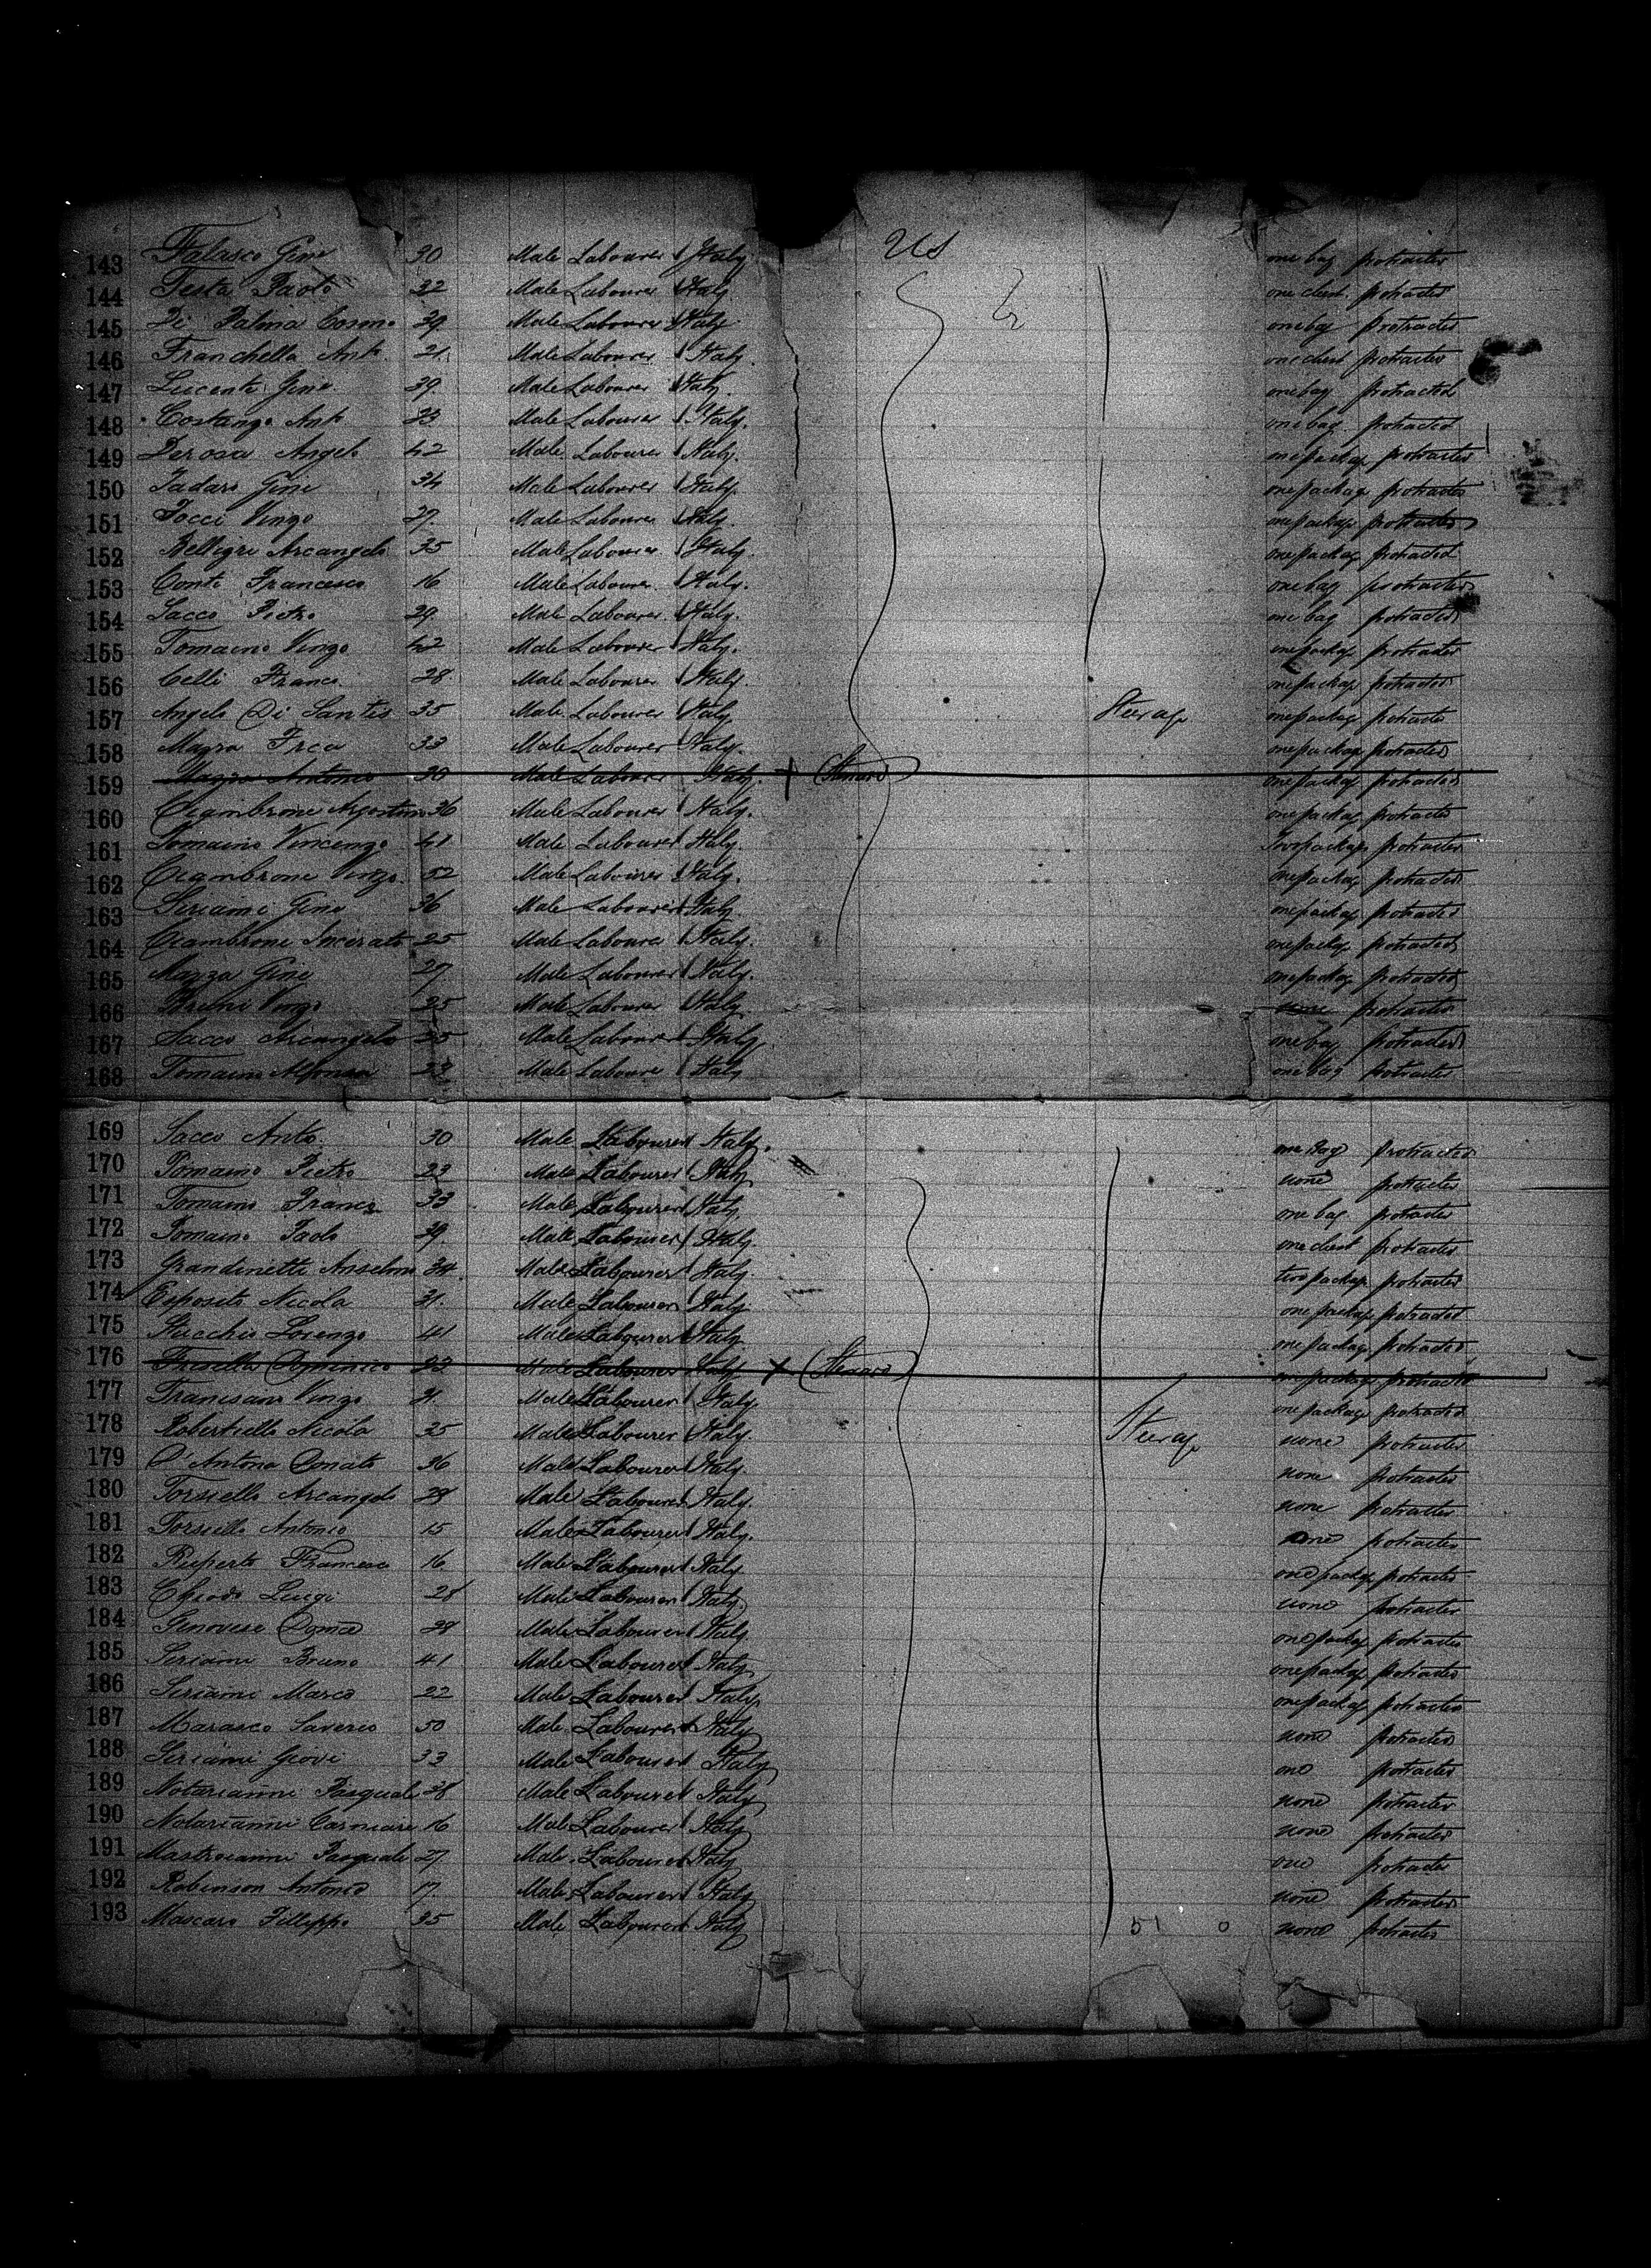 143 Falasco Gine 30 Male Labourer Italy US one bag protracted
144 Testa Paolo 32 Male Labourer Italy one chest protracted
145 Di Palma Cosmo 39 Male Labourer Italy one bag protracted
146 Franchella Ant 21 Male Labourer Italy one chest protracted
147 Lucente Gine 39 Male Labourer Italy one bag protracted
148 Costanzo Ant 23 Male Labourer Italy one bag protracted
149 Derosa Angelo 42 Male Labourer Italy one package protracted
150 Tadaro Gine 34 Male Labourer Italy one package protracted
151 Tocci Vinzo Male Labourer Italy one package protracted
152 Arcangelo 35 Male Labourer Italy one package protracted
153 Conte Francesco 16 Male Labourer Italy one bag protracted
154 Sacco Pietro 29 Male Labourer Italy one bag protracted
155 Tomaino Vinzo 42 Male Labourer Italy one package protracted
156 Celli Franco 28 Male Labourer Italy one package protracted
157 Angelo Di Santis 35 Male Labourer Italy Steerage one package protracted
158 Mazza Frca 33 Male Labourer Italy one package protracted
159 Mazza Antonio 30 Male Labourer Italy one package protracted
160 Ciambrone Agostino 36 Male Labourer Italy one package protracted
161 Tomaino Vincenzo 41 Male Labourer Italy Two packages protracted
162 Ciambrone Vinzo 52 Male Labourer Italy one package protracted
163 Seriami Gine 36 Male Labourer Italy one package protracted
164 Ciambrone 25 Male Labourer Italy one package protracted
165 Mazza Gine 27 Male Labourer Italy one package protracted
166 Bruni Vinzo 25 Male Labourer Italy none protracted
167 Sacco Arcangelo 35 Male Labourer Italy one bag protracted
168 Tomaino Alfonso 23 Male Labourer Italy one bag protracted
169 Sacco Anto 30 Male Labourer Italy one bag protracted
170 Tomaino Pietro 23 Male Labourer Italy none protracted
171 Tomaino Franco 33 Male Labourer Italy one bag protracted
172 Tomaino Paolo 39 Male Labourer Italy one chest protracted
173 Grandinetti Anselmo 34 Male Labourer Italy two package protracted
174 Esposito Nicola 31 Male Labourer Italy one package protracted
175 Stacchio Lorenzo 41 Male Labourer Italy one package protracted
176 Domenico 23 Male Labourer Italy one package protracted
177 Vinzo 31 Male Labourer Italy one package protracted
178 Robertiello Nicola 35 Male Labourer Italy Steerage none protracted
179 D'Antona Donato 36 Male Labourer Italy none protracted
180 Torsiello Arcangelo 28 Male Labourer Italy none protracted
181 Torsiello Antonio 15 Male Labourer Italy none protracted
182 Ruperto Francesco 16 Male Labourer Italy one package protracted
183 Chiodo Luigi 28 Male Labourer Italy none protracted
184 Genovese Domco 38 Male Labourer Italy one package protracted
185 Seriami Bruno 41 Male Labourer Italy one package protracted
186 Seriami Marco 22 Male Labourer Italy one package protracted
187 Marasco Saverio 50 Male Labourer Italy none protracted
188 Seriami Giovi 33 Male Labourer Italy one protracted
189 Notarianni Pasquale 38 Male Labourer Italy none protracted
190 Notarianni 16 Male Labourer Italy none protracted
191 Mastroianni Pasquale 27 Male Labourer Italy one protracted
192 Robinson Antonio 17 Male Labourer Italy none protracted
193 Mascaro Fillippo 35 Male Labourer Italy 51 0 none protracted